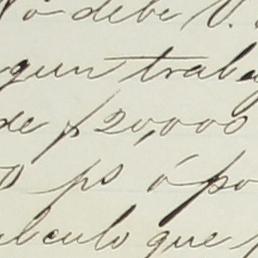 ó debe V.
gun traba
de $20,000
ps ó po
lculo que